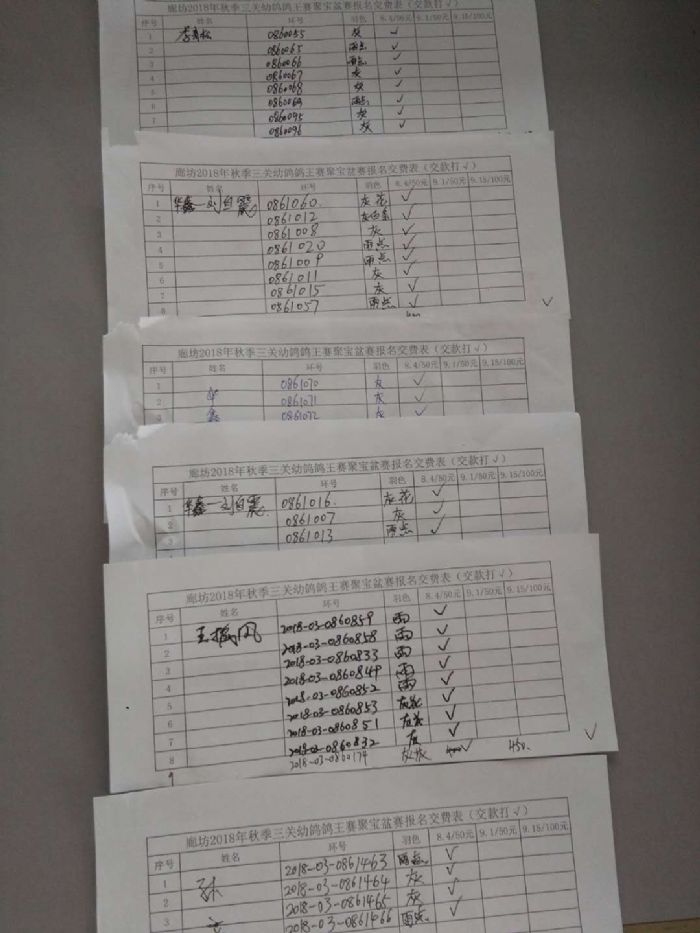 廊坊2018年秋季三关幼鸽鸽王赛聚宝盆赛报名交费表（交款打√）
序号 姓名 环号 羽色 8.4/50元 9.1/50元 9.15/100元
1 0860055 灰 √
2 0860065 雨点 √
3 0860066 雨点 √
4 0860067 灰 √
5 0860068 灰 √
6 0860069 雨点 √
7 0860095 灰 √
0860096 灰 √
廊坊2018年秋季三关幼鸽鸽王赛聚宝盆赛报名交费表（交款打√）
序号 姓名 环号 羽色 8.4/50元 9.1/50元 9.15/100元
1 华鑫一刘自震 0861060 灰花 √
2 0861012 灰白条 √
3 0861008 灰 √
4 0861020 雨点 √
5 0861009 雨点 √
6 0861011 灰 √
7 0861015 灰 √
8 0861057 雨点 √ √
廊坊2018年秋季三关幼鸽鸽王赛聚宝盆赛报名交费表（交款打√）
序号 姓名 环号 羽色 8.4/50元 9.1/50元 9.15/100元
1 0861070 灰 √
2 华 0861071 灰 √
3 鑫 0861072 灰 √
廊坊2018年秋季三关幼鸽鸽王赛聚宝盆赛报名交费表（交款打√）
序号 姓名 环号 羽色 8.4/50元 9.1/50元 9.15/100元
1 华鑫一刘自震 0861016. 灰花 √
2 0861007 灰 √
3 0861013 雨点 √
廊坊2018年秋季三关幼鸽鸽王赛聚宝盆赛报名交费表（交款打√）
序号 姓名 环号 羽色 8.4/50元 9.1/50元 9.15/100元
1 王振凤 2018-03-0860859 雨 √
2 2018-03-0860858 雨 √
3 2018-03-0860833 雨 √
4 2018-03-0860849 雨 √
5 2018-03-0860852 雨 √
6 2018-03-0860853 灰花 √
7 2018-03-0860851 灰花 √
8 2018-03-0860832 灰 √
9 2018-03-0860174 灰 √ 450. √
廊坊2018年秋季三关幼鸽鸽王赛聚宝盆赛报名交费表（交款打√）
序号 姓名 环号 羽色 8.4/50元 9.1/50元 9.15/100元
1 2018-03-0861463 雨点 √
2 孙 2018-03-0861464 灰 √
3 2018-03-0861465 灰 √
2018-03-0861466 雨点 √